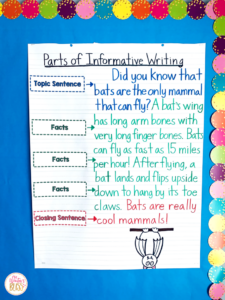 Parts of Informative Writing
Topic Sentence
Did you know that
bats are the only mammal
that can fly? A bat's wing
Facts
has long arm bones with
very long finger bones. Bats
can fly as fast as 15 miles
Facts
per hour! After flying, a
bat lands and flips upside
Facts
down to hang by its toe
claws. Bats are really
Closing Sentence
cool mammals!